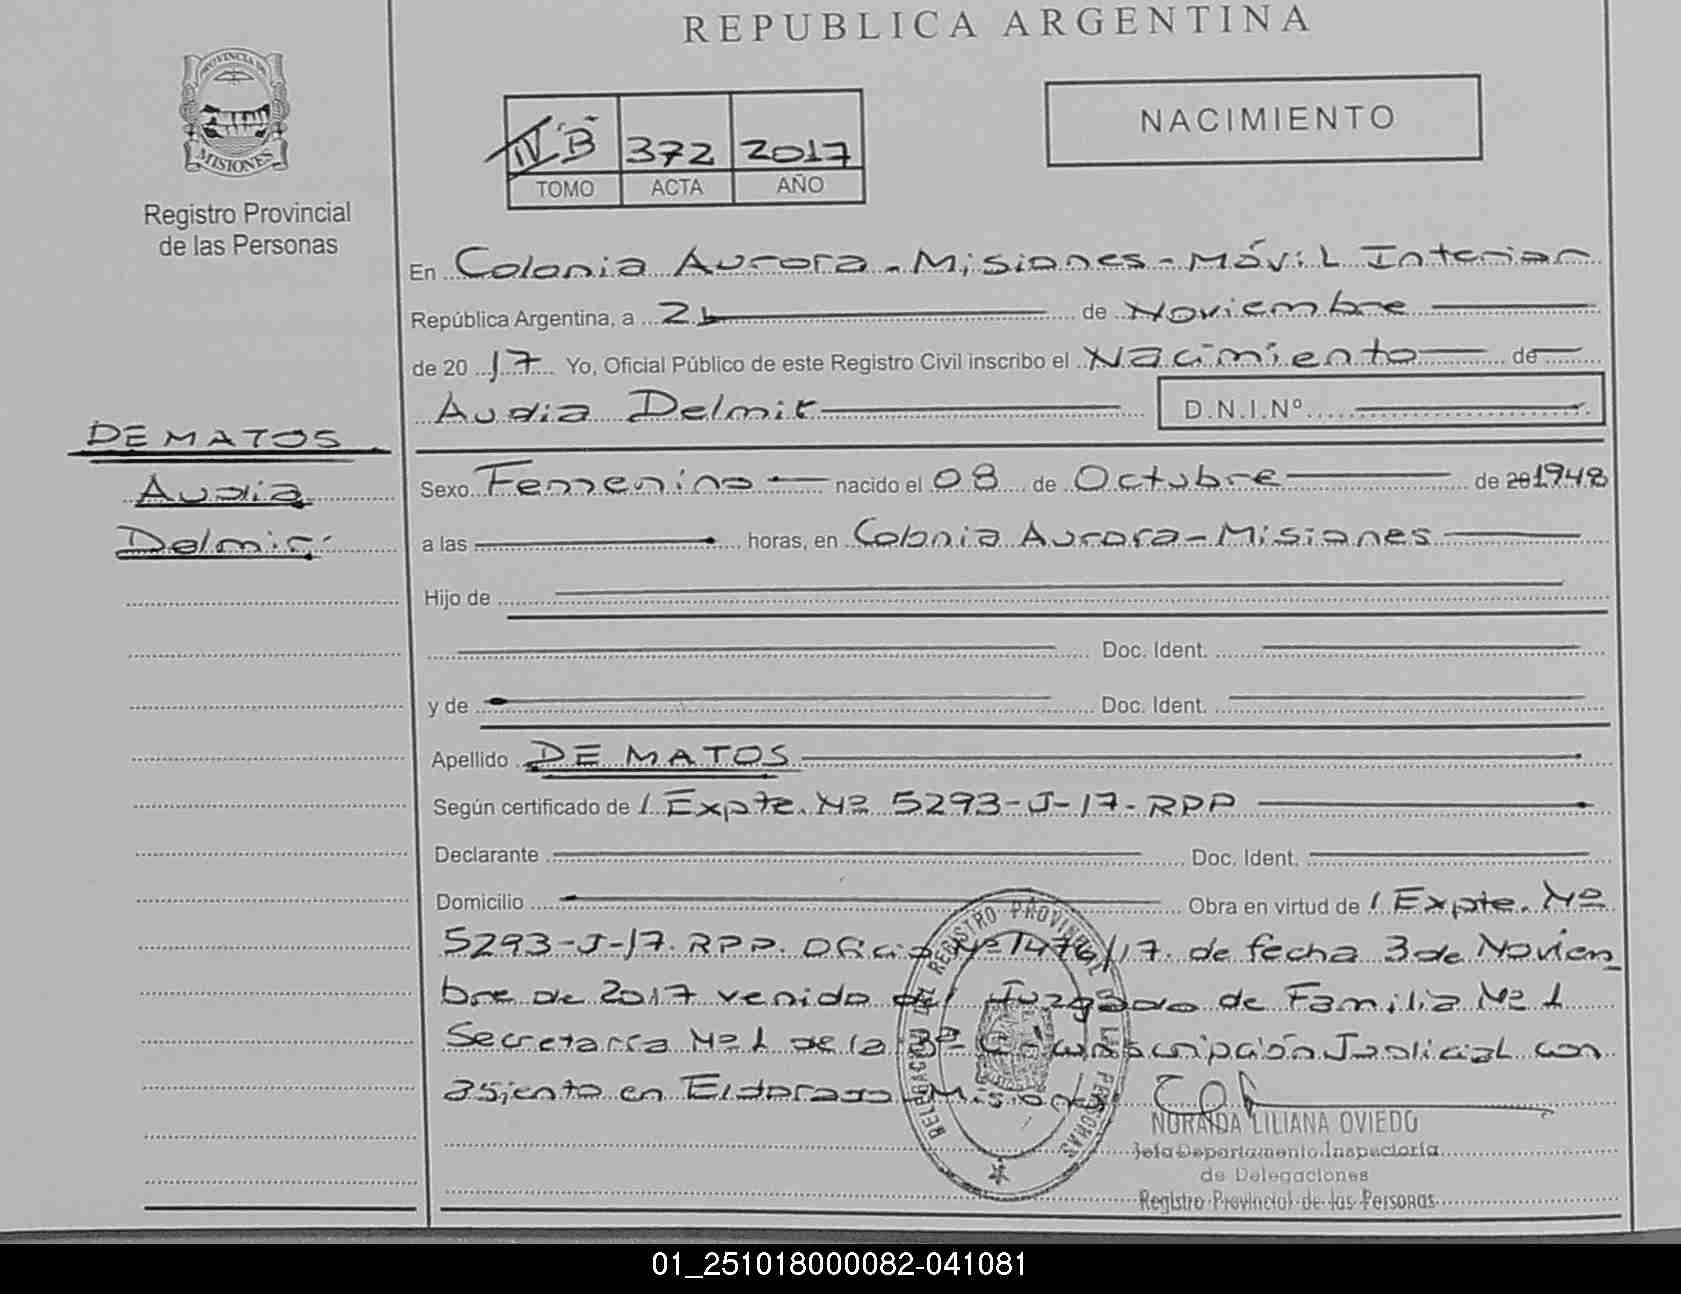 REPUBLICA ARGENTINA
PROVINCIA DE
MISIONES
Registro Provincial
de las Personas
IV "B" 372 2017
TOMO ACTA AÑO
NACIMIENTO
En Colonia Aurora - Misiones - Móvil Interior
República Argentina, a 21 de Noviembre
de 20 17 Yo, Oficial Público de este Registro Civil inscribo el Nacimiento de
Audia Delmir D.N.I.Nº
DE MATOS
Audia
Delmir
Sexo Femenino nacido el 08 de Octubre de 20 1948
a las horas, en Colonia Aurora - Misiones
Hijo de
Doc. Ident.
y de Doc. Ident.
Apellido DE MATOS
Según certificado de / Expte. Nº 5293-J-17-RPP
Declarante Doc. Ident.
Domicilio Obra en virtud de / Expte. Nº
5293-J-17. RPP. Oficio Nº 1476/17. de fecha 3 de Noviem
bre de 2017 venido del Juzgado de Familia Nº 1
Secretaria Nº 1 de la 3ª Circunscripción Judicial con
asiento en Eldorado - Misiones
DELEGACION DEL REGISTRO PROVINCIAL DE LAS PERSONAS
NORAIDA LILIANA OVIEDO
Jefa Departamento Inspectoria
de Delegaciones
Registro Provincial de las Personas
01_251018000082-041081